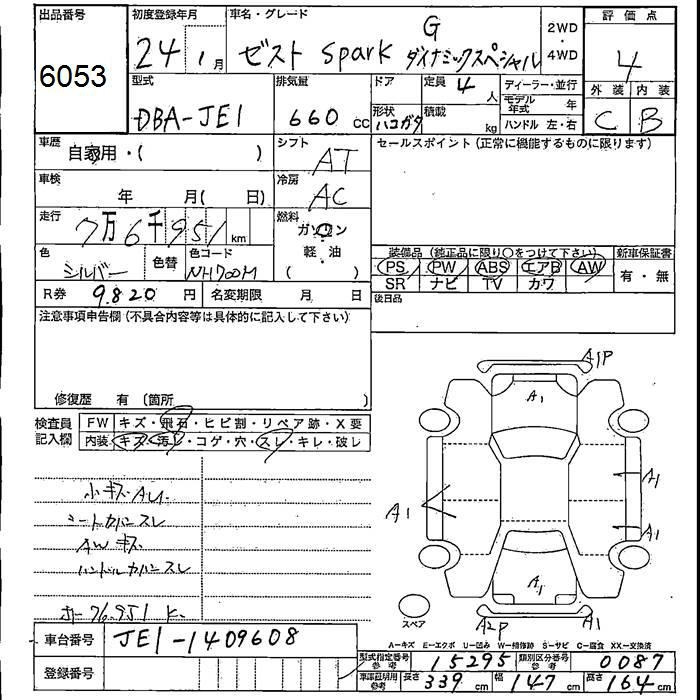 出品番号
6053
初度登録年月
24 1月
車名・グレード
ゼスト spark G ダイナミックスペシャル
2WD
・
4WD
評価点
4
外装 内装
C B
型式
DBA-JE1
排気量
660 cc
ドア
形状
ハコガタ
定員
4人
積載
kg
ディーラー・並行
モデル年式 年
ハンドル 左・右
車歴
自家用・( )
シフト
AT
セールスポイント(正常に機能するものに限ります)
車検
年 月( 日)
冷房
AC
走行
7万6千951 km
燃料
ガソリン
軽油
( )
色
シルバー
色替
色コード
NH700M
装備品(純正品に限り○をつけて下さい)
PS PW ABS エアB AW
SR ナビ TV カワ
新車保証書
有・無
R券 9,820円
名変期限 月 日
後日品
注意事項申告欄(不具合内容等は具体的に記入して下さい)
修復歴 有(箇所 )
検査員記入欄
FW キズ・飛石・ヒビ割・リペア跡・X要
内装 キズ・汚レ・コゲ・穴・スレ・キレ・破レ
小キズAU.
シートカバースレ
AWキズ
ハンドルカバースレ
ホー76.951 K.
A1P
A1
A1
A1
A1
A1
A2P
A1
スペア
車台番号
JE1-1409608
登録番号
A-キズ E-エクボ U-凹み W-補修跡 S-サビ C-腐食 XX-交換済
型式指定番号 参考 15295
類別区分番号 参考 0087
車庫証明用 参考 長さ 339cm 幅 147cm 高さ 164cm